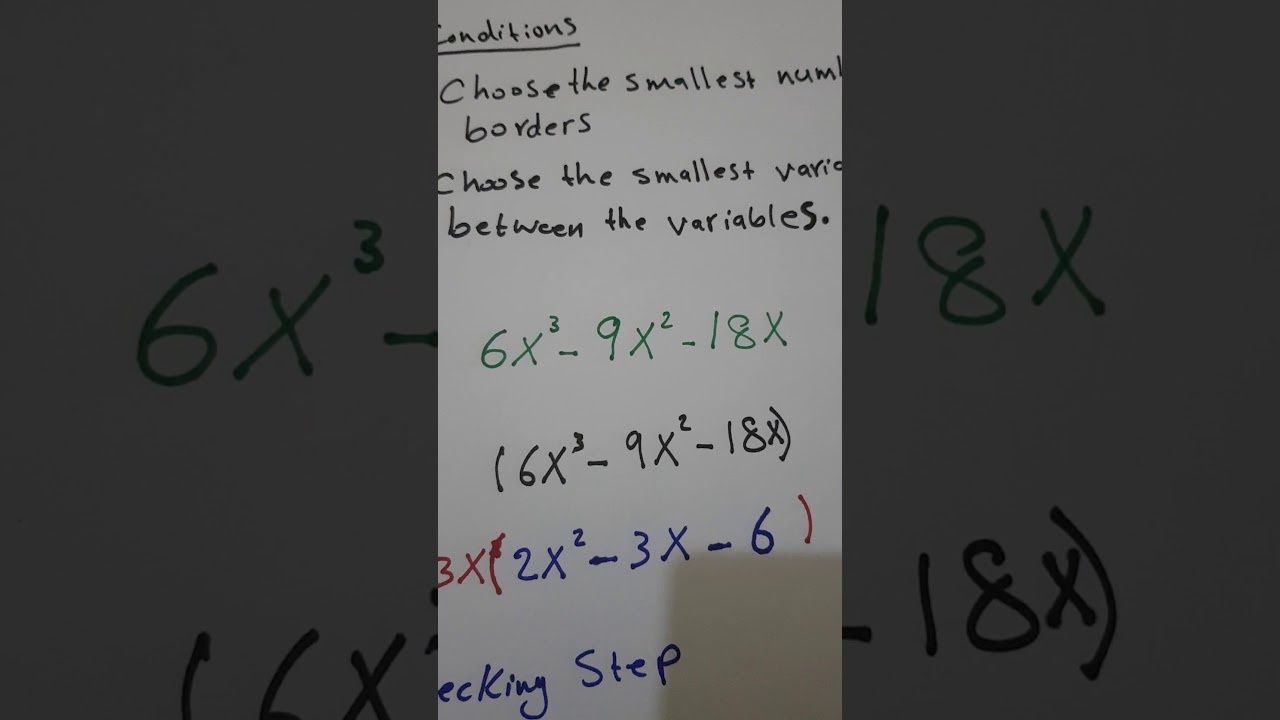 Conditions
Choose the smallest
borders
Choose the smallest
between the variables.
6x³ - 9x² - 18x
(6x³ - 9x² - 18x)
3x(2x² - 3x - 6)
Step